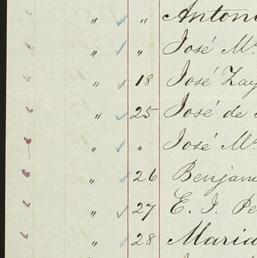 " " Antoni
" " José Ma
" 18 José Zay
" 25 José de
" " José Ma
" 26 Benjam
" 27 E. J. Pe
" 28 Maria